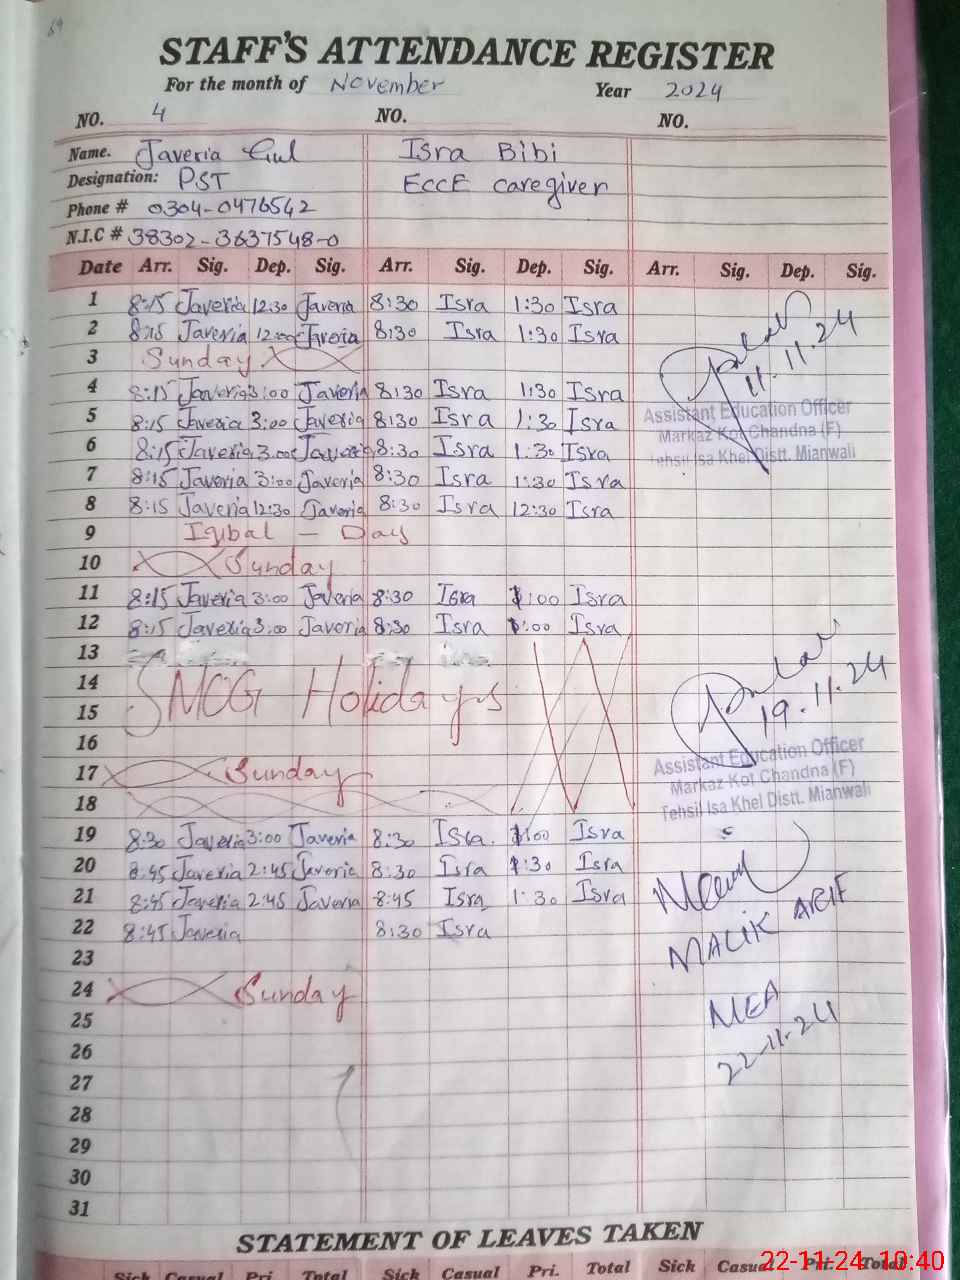 STAFF'S ATTENDANCE REGISTER
For the month of November Year 2024
NO. 4 NO. NO.
Name. Javeria Gul Isra Bibi
Designation: PST EccE caregiver
Phone # 0304-0476542
N.I.C # 38302-3637548-0
Date Arr. Sig. Dep. Sig. Arr. Sig. Dep. Sig. Arr. Sig. Dep. Sig.
1 8:15 Javeria 12:30 Javeria 8:30 Isra 1:30 Isra
2 8:15 Javeria 12:00 Javeria 8:30 Isra 1:30 Isra
3 Sunday
4 8:15 Javeria 3:00 Javeria 8:30 Isra 1:30 Isra
5 8:15 Javeria 3:00 Javeria 8:30 Isra 1:30 Isra
6 8:15 Javeria 3:00 Javeria 8:30 Isra 1:30 Isra
7 8:15 Javeria 3:00 Javeria 8:30 Isra 1:30 Isra
8 8:15 Javeria 12:30 Javeria 8:30 Isra 12:30 Isra
9 Iqbal - Day
10 Sunday
11 8:15 Javeria 3:00 Javeria 8:30 Isra :00 Isra
12 8:15 Javeria 3:00 Javeria 8:30 Isra :00 Isra
13
14 SMOG Holidays
15
16
17 Sunday
18
19 8:30 Javeria 3:00 Javeria 8:30 Isra. :00 Isra
20 8:45 Javeria 2:45 Javeria 8:30 Isra :30 Isra
21 8:45 Javeria 2:45 Javeria 8:45 Isra 1:30 Isra
22 8:45 Javeria 8:30 Isra
23
24 Sunday
25
26
27
28
29
30
31
11.11.24
Assistant Education Officer
Markaz Kot Chandna (F)
Tehsil Isa Khel Distt. Mianwali
19.11.24
Assistant Education Officer
Markaz Kot Chandna (F)
Tehsil Isa Khel Distt. Mianwali
MALIK ARIF
MEA
22-11-24
STATEMENT OF LEAVES TAKEN
Sick Casual Pri. Total Sick Casual Pri. Total Sick Casual Pri. Total
22-11-24 10:40